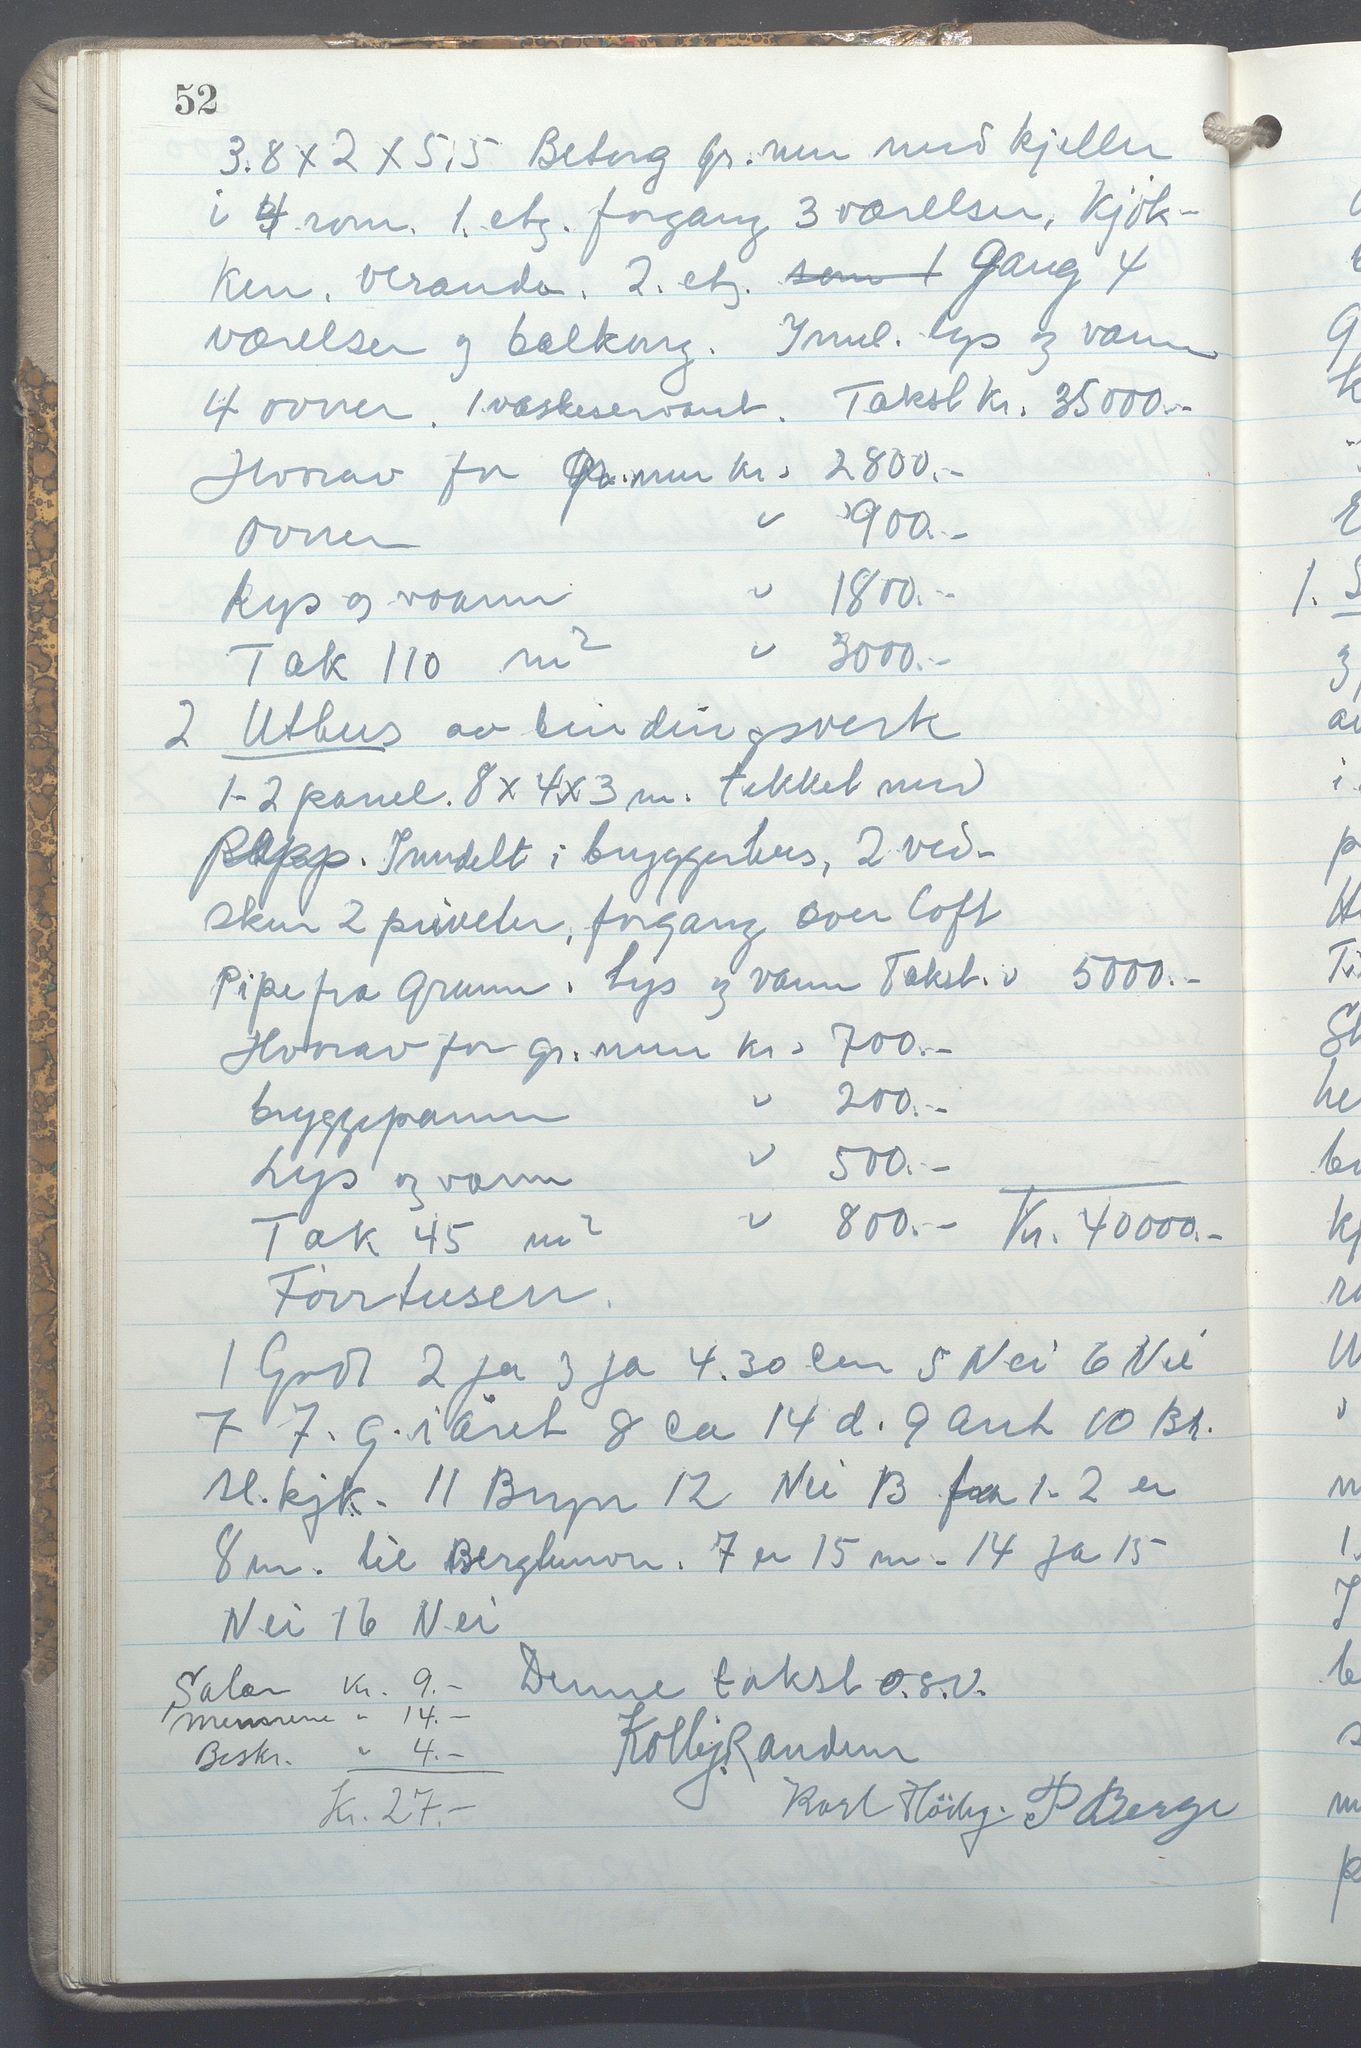 52
3.8 x 2 x 5,5 Betong gr. mur med kjeller
i 4 rom. 1. etg. forgang 3 værelser, kjøk-
ken, veranda. 2. etg. Gang 4
værelser og balkong. Innl. lys og vann
4 ovner, 1 vaskeservant. Takst kr. 35000.-
Hvorav for gr. mur kr. 2800.-
ovner " 900.-
Lys og vann " 1800.-
Tak 110 m² " 3000.-
2 Uthus av bindingsverk
1-2 panel. 8 x 4 x 3 m. tekket med
papp. Inndelt i bryggerhus, 2 ved-
skur 2 priveter, forgang over loft
Pipe fra Grunn. Lys og vann Takst. " 5000.-
Hvorav for gr. mur kr. 700.-
bryggepanne " 200.-
Lys og vann " 500.-
Tak 45 m² " 800.- Kr. 40000.-
Førrtusen.
1 Godt 2 ja 3 ja 4. 30 cm 5 Nei 6 Nei
7 7. g. i året 8 ca 14 d. 9 Ant 10 Br.
sl. kjk. 11 Bryn 12 Nei 13 fra 1-2 er
8 m. til Berghmon. 7 er 15 m. 14 Ja 15
Nei 16 Nei
Salær kr. 9.- Denne takst o.s.v.
Mennene " 14.-
Beskr. " 4.- Kolbj. Randem
Kr. 27.- Karl P Berge